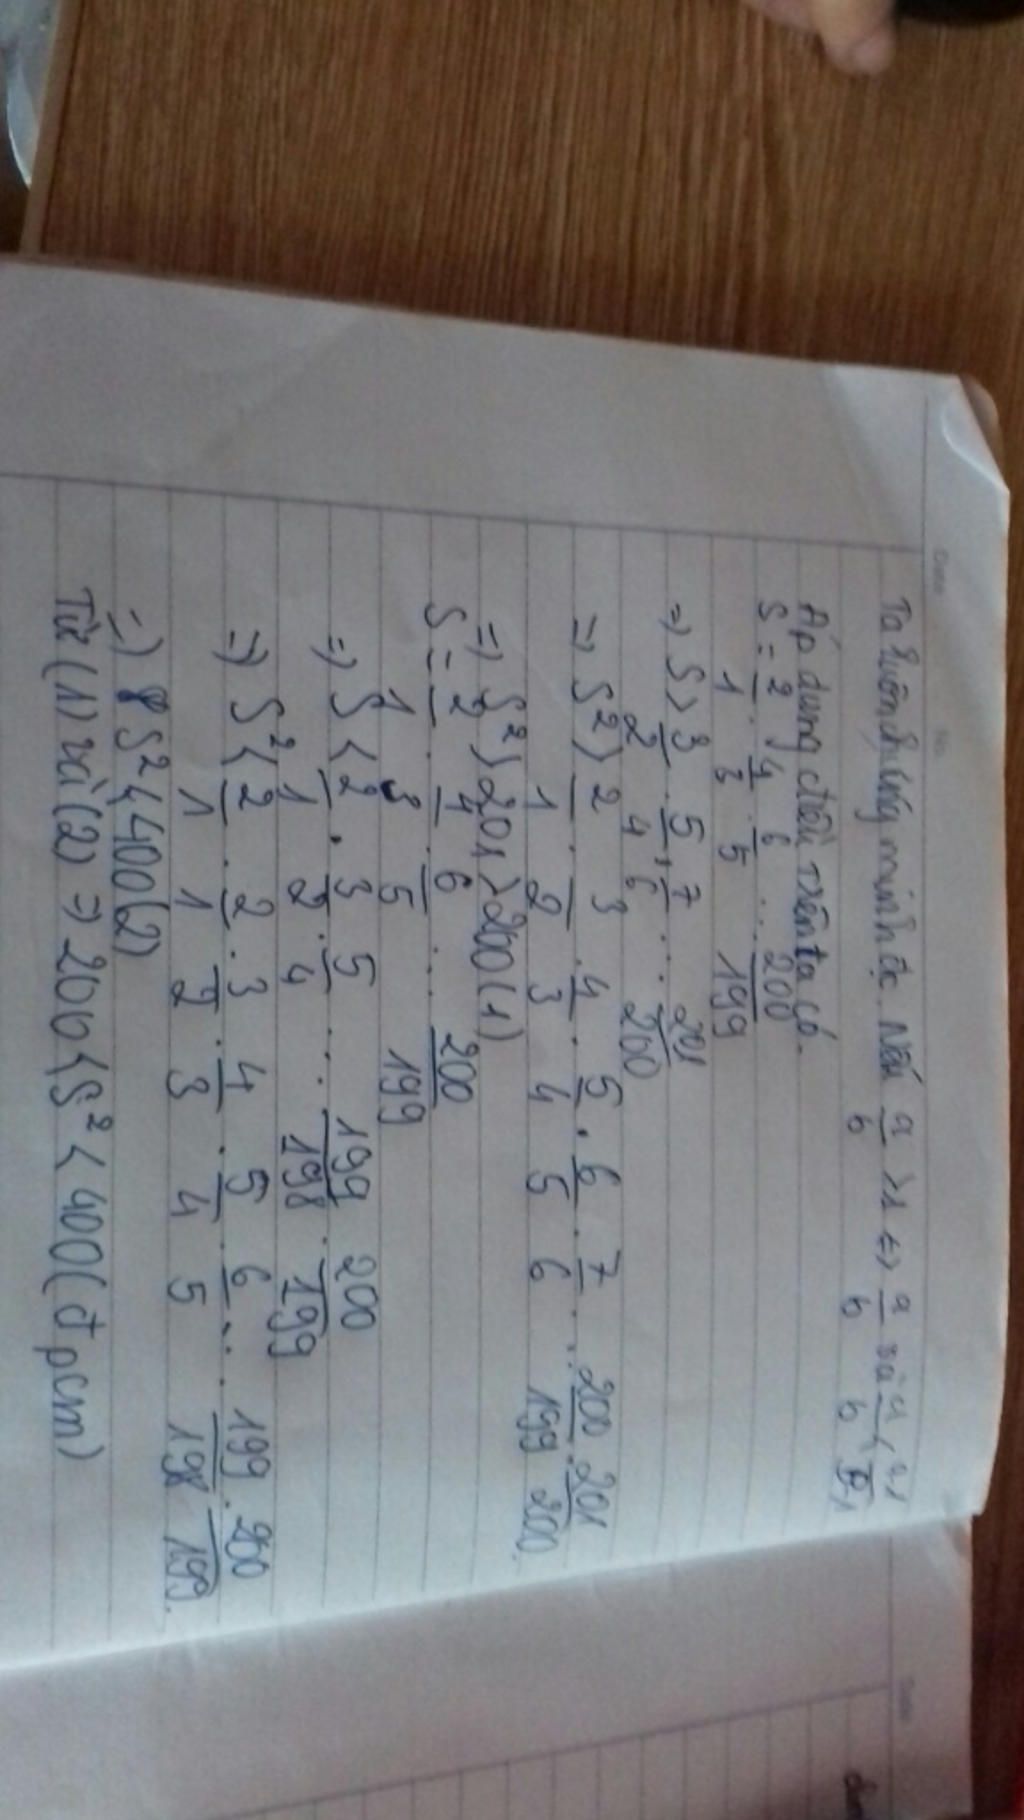 Date No.
Ta luôn chứng minh đc. Nếu a/b > 1 <=> a/b và a/b < a-1/b-1
Áp dụng điều trên ta có.
S = 2/1 . 4/3 . 6/5 ... 200/199
=> S > 3/2 . 5/4 . 7/6 ... 201/200
=> S² > 2/1 . 3/2 . 4/3 . 5/4 . 6/5 . 7/6 ... 200/199 . 201/200
=> S² > 201 > 200 (1)
S = 2/1 . 4/3 . 6/5 ... 200/199
=> S < 2/1 . 3/2 . 5/4 ... 199/198 . 200/199
=> S² < 2/1 . 2/1 . 3/2 . 4/3 . 5/4 . 6/5 ... 199/198 . 200/199
=> S² < 400 (2)
Từ (1) và (2) => 200 < S² < 400 (đpcm)